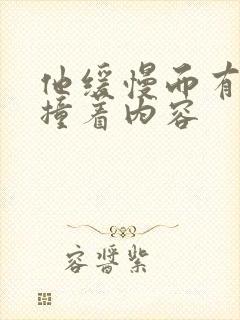 他缓慢而有
撞着内容
容晋紫